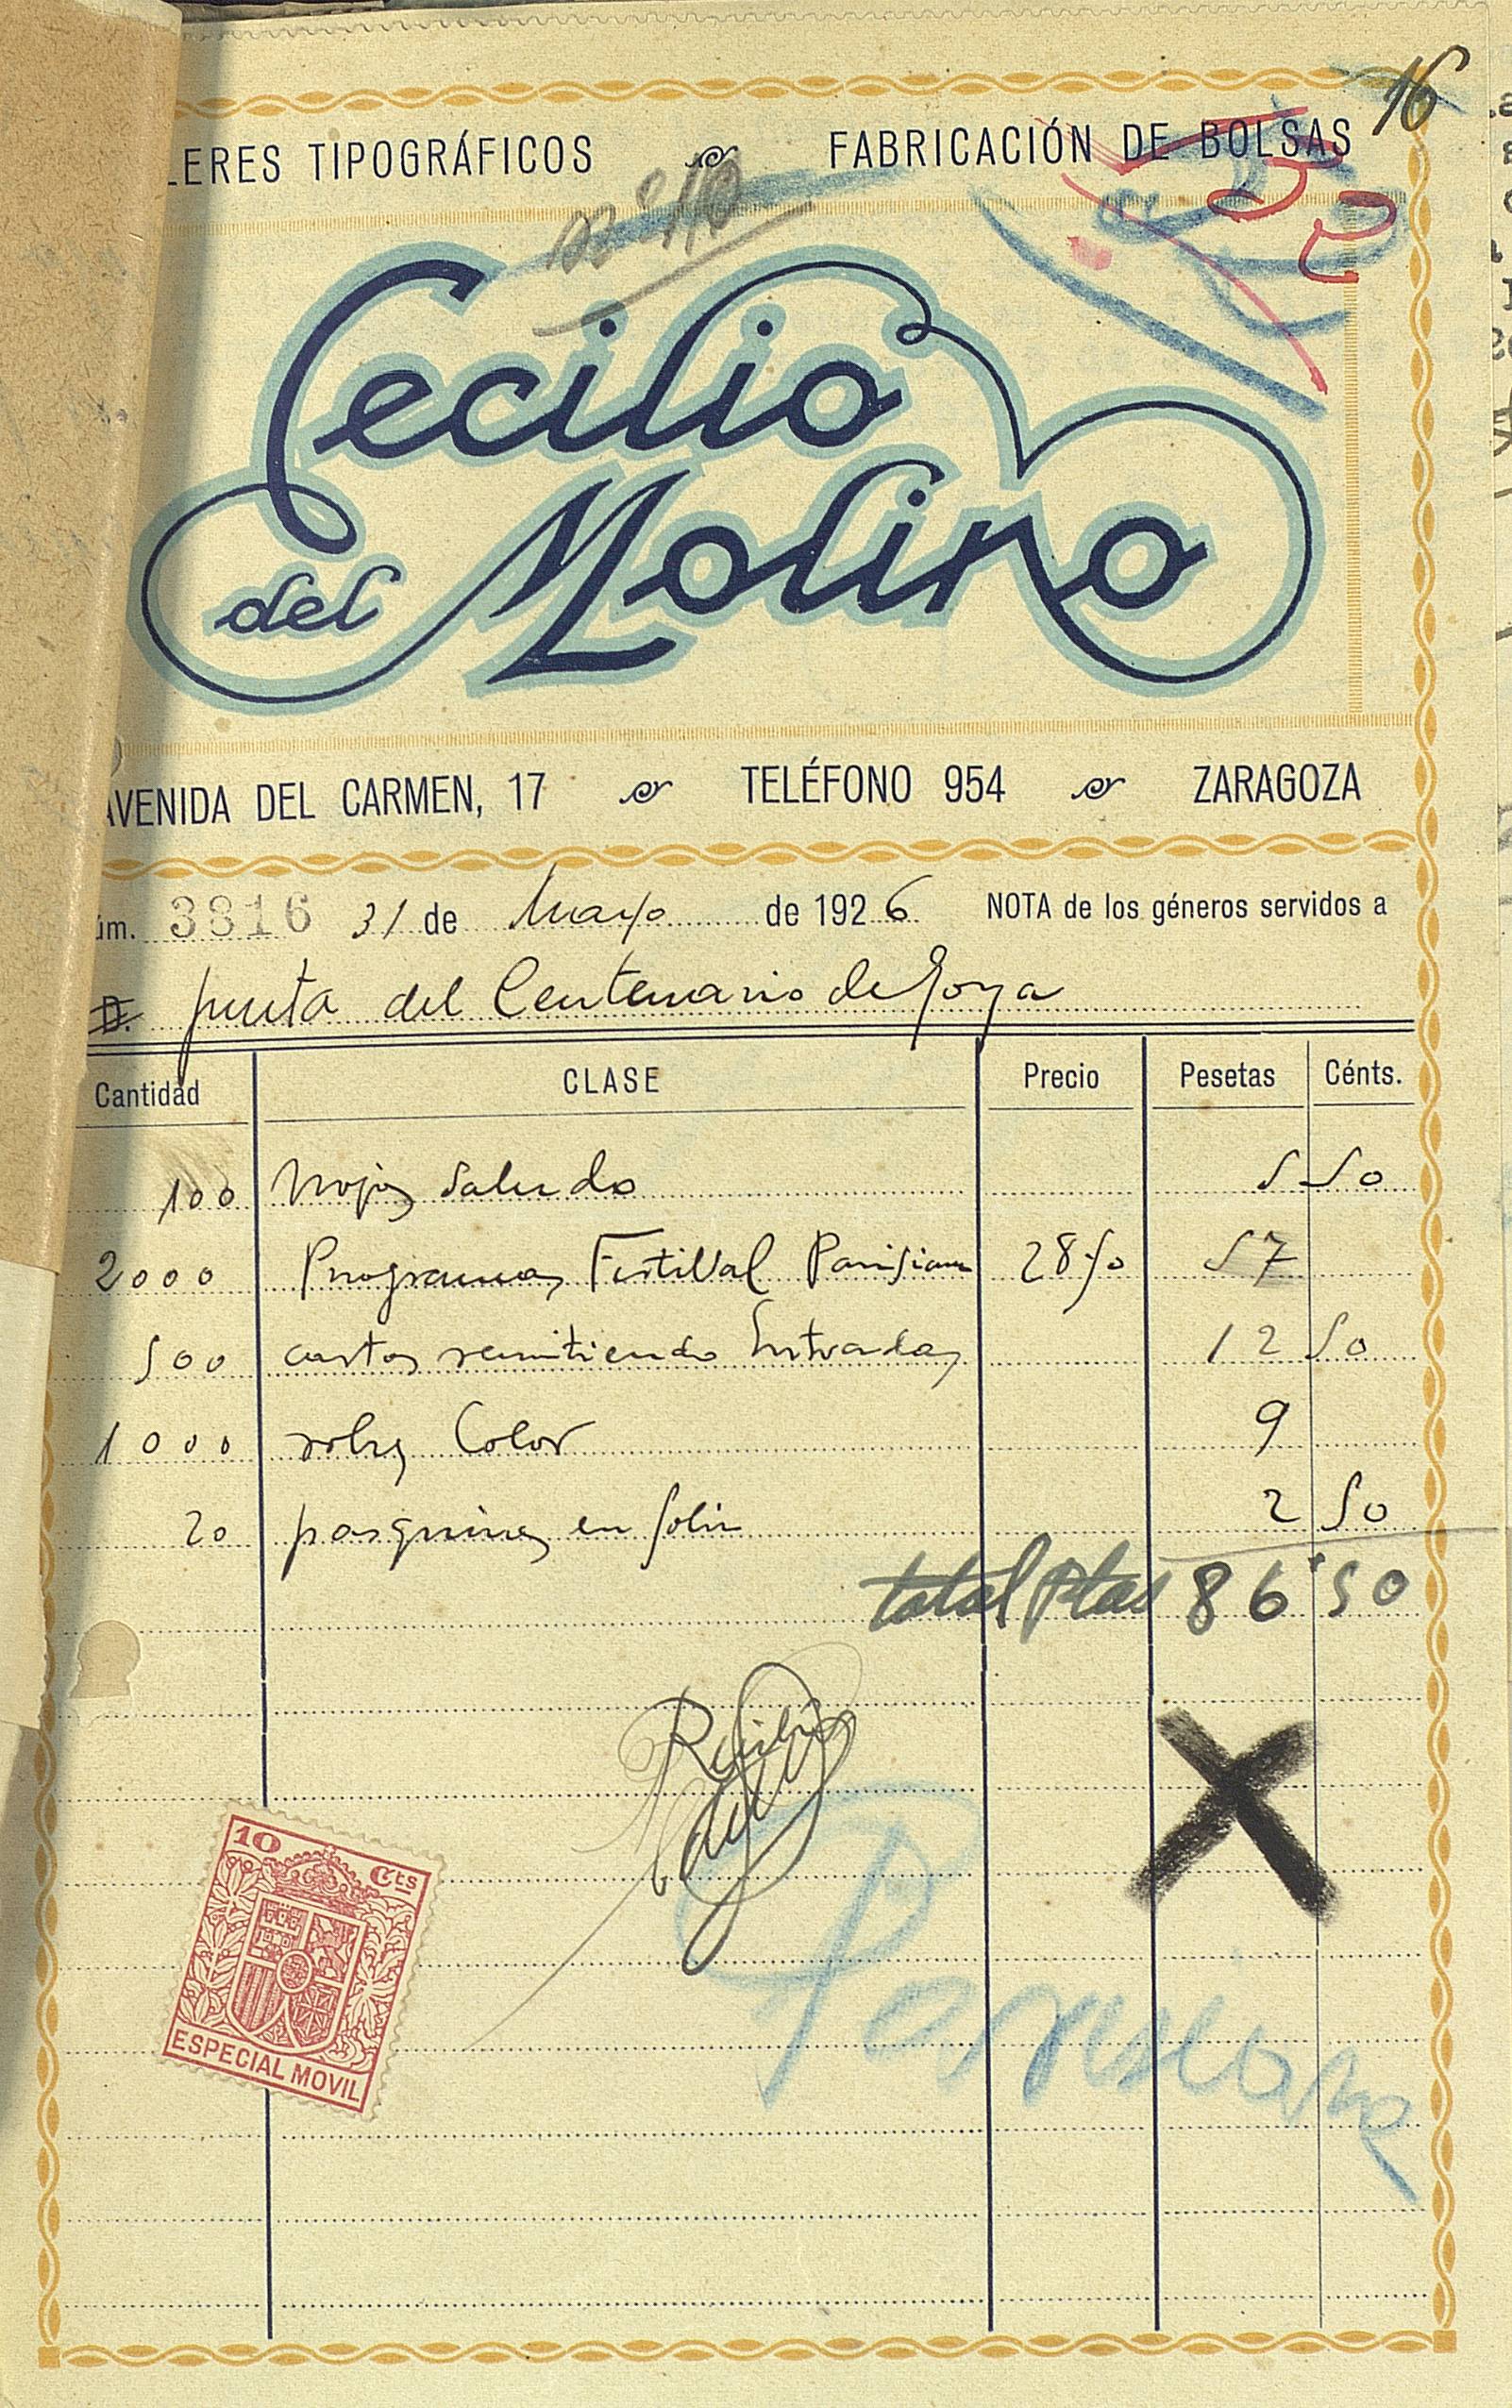 16
LERES TIPOGRÁFICOS FABRICACIÓN DE BOLSAS
Cecilio
del Molino
AVENIDA DEL CARMEN, 17 TELÉFONO 954 ZARAGOZA
úm. 3816 31 de Mayo de 1926 NOTA de los géneros servidos a
D. Junta del Centenario de Goya
Cantidad CLASE Precio Pesetas Cénts.
100 hojas Saludo 5 50
2000 Programas Festival Parisiana 28'50 57
500 cartas remitiendo Entradas 12 50
1000 sobres Color 9
20 pasquines en folio 2 50
total Ptas 86'50
Recibí
10 CTS
ESPECIAL MOVIL
Parisiana